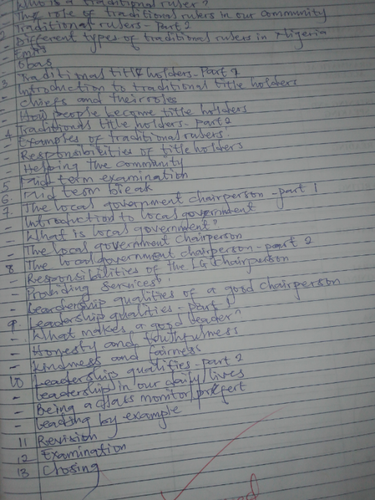 - Who is a traditional ruler?
- The role of traditional rulers in our community
2 Traditional rulers - Part 2
- Different types of traditional rulers in Nigeria
- Obas
3 Traditional title holders - Part 1
- Introduction to traditional title holders
- Chiefs and their roles
- How people become title holders
4 Traditional title holders - Part 2
- Examples of traditional rulers
- Responsibilities of title holders
- Helping the community
5 Mid term examination
6 Mid term break
7 The local government chairperson - part 1
- Introduction to local government
- What is local government?
- The local government chairperson
8 The local government chairperson - part 2
- Responsibilities of the LG chairperson
- Providing services
- Leardership qualities of a good chairperson
9 Leadership qualities - Part 1
- What makes a good leader?
- Honesty and truthfulness
- Kindness and fairness
10 Leadership qualities - part 2
- Leadership in our daily lives
- Being a class monitor/prefect
- Leading by example
11 Revision
12 Examination
13 Closing